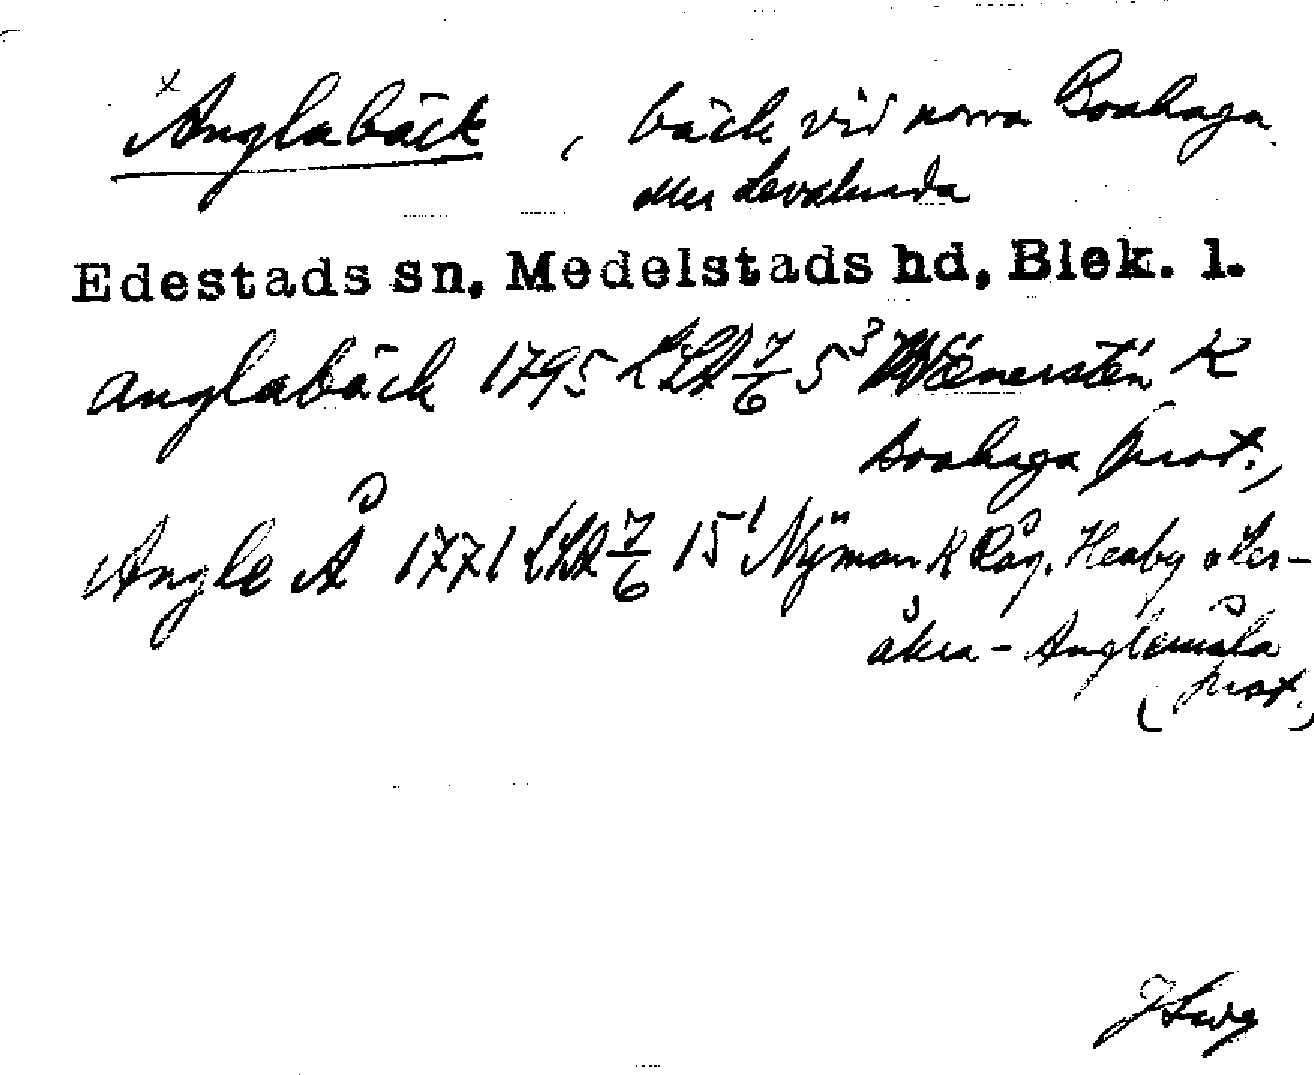 x Anglabäck, bäck vid norra Boahaga
eller Levalunda
Edestads sn, Medelstads hd, Blek. l.
Anglabäck 1795 LSA 7/6 5³ Wænerstén K
Boahaga prot.,
Angle Å 1771 LSA 7/6 15¹ Nÿman K Råg. Heaby o Ler-
åkra - Anglemåla
(prot.)